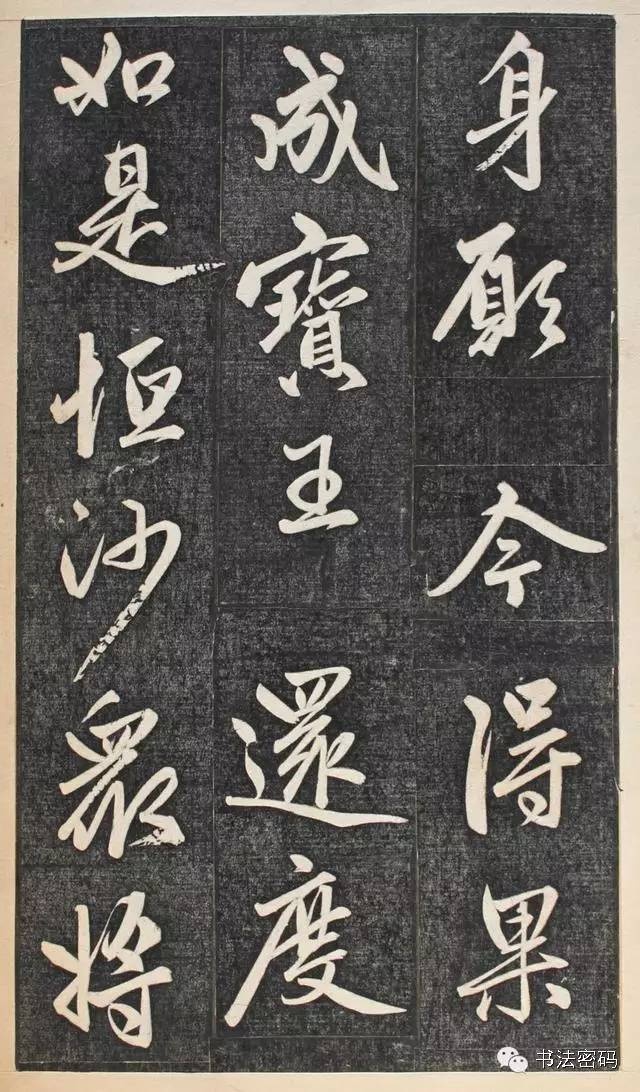 身願今得果
成寶王還度
如是恒沙眾將
书法密码